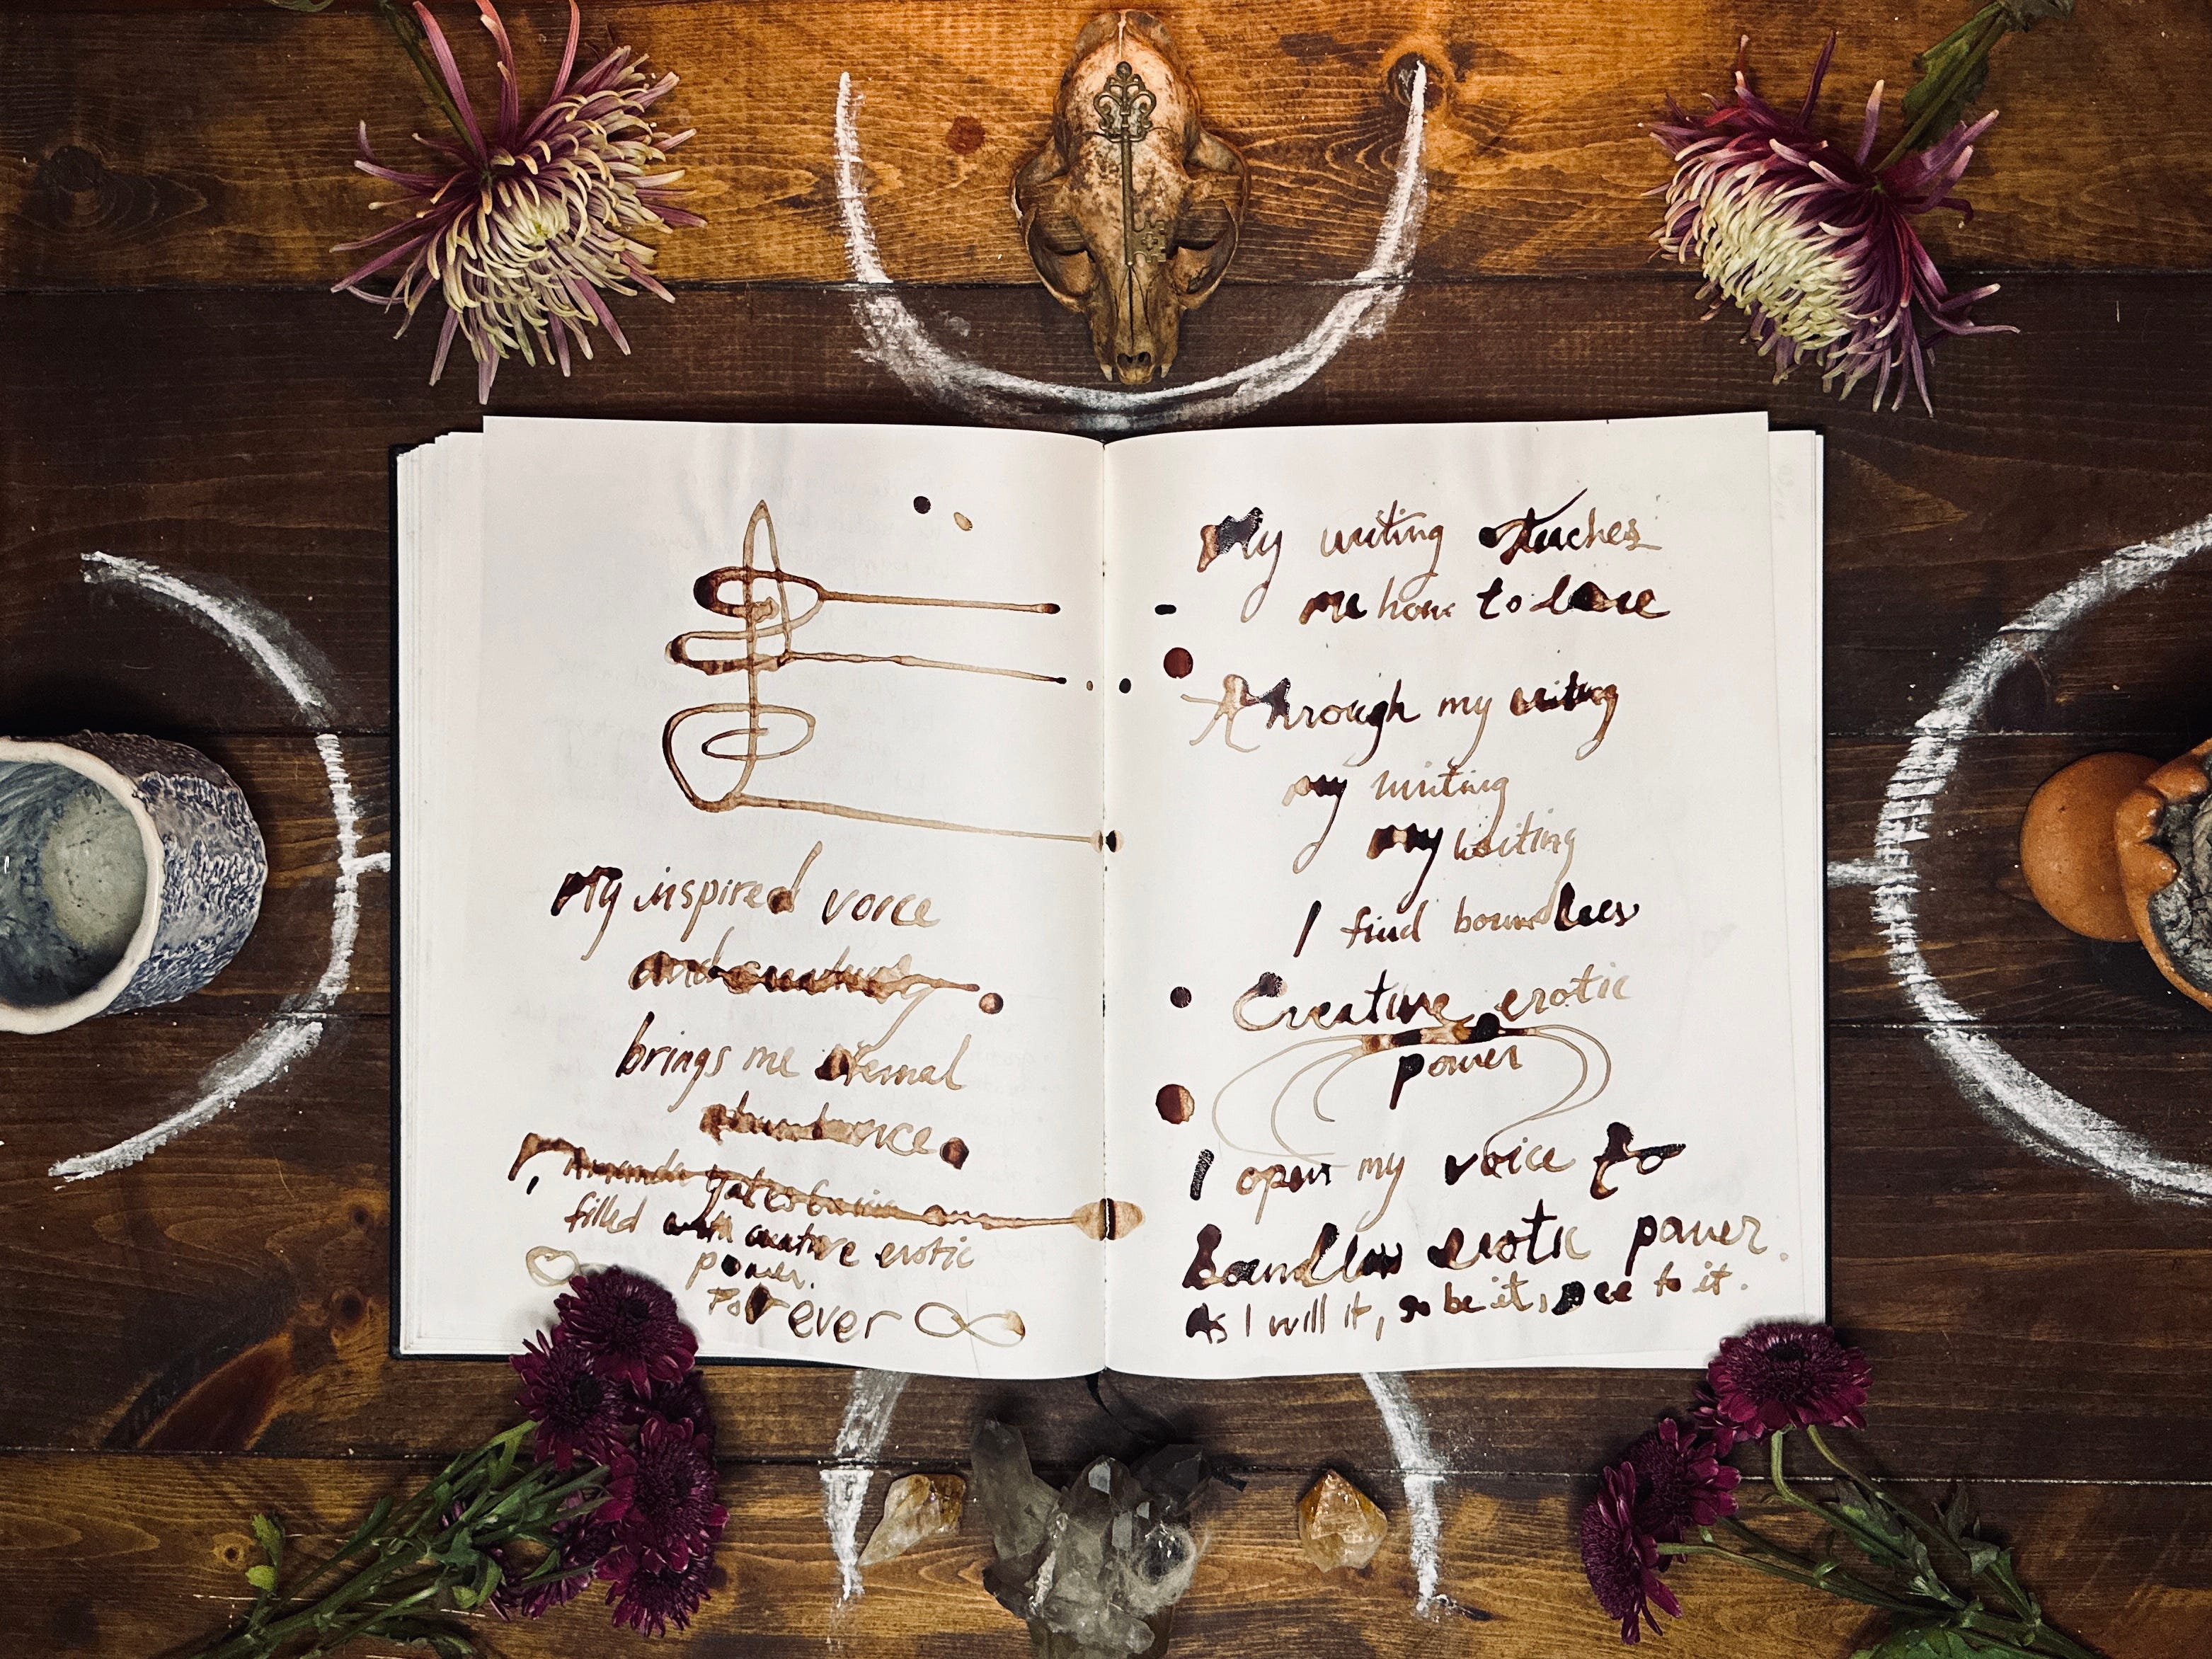 My inspired voice
and creativity
brings me eternal
abundance
I, Amanda Yates Garcia am
filled with creative erotic
power.
Forever
My writing teaches
me how to love
Through my writing
my writing
my writing
I find boundless
Creative erotic
power
I open my voice to
boundless erotic power.
As I will it, so be it, see to it.